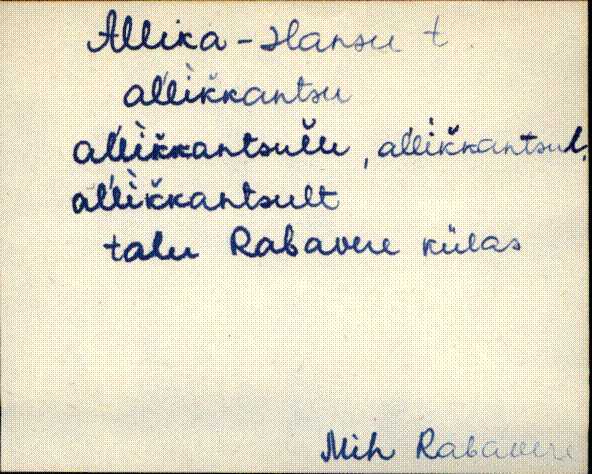 Allika-Hansu t.
al̀likkantsu
al̀likkantsuĺlu, al̀likkantsul,
al̀likkantsult
talu Rabavere külas
Mih Rabavere